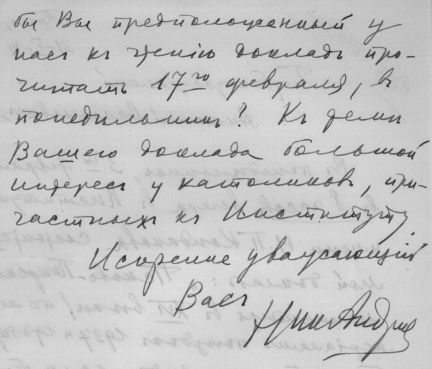 бы Вы предположенный у
нас къ чтенію докладъ про-
читать 17го февраля, въ
понедѣльникъ? Къ темѣ
Вашего доклада большой
интересъ у католиковъ, при-
частныхъ къ Институту.
Искренне уважающій
Васъ